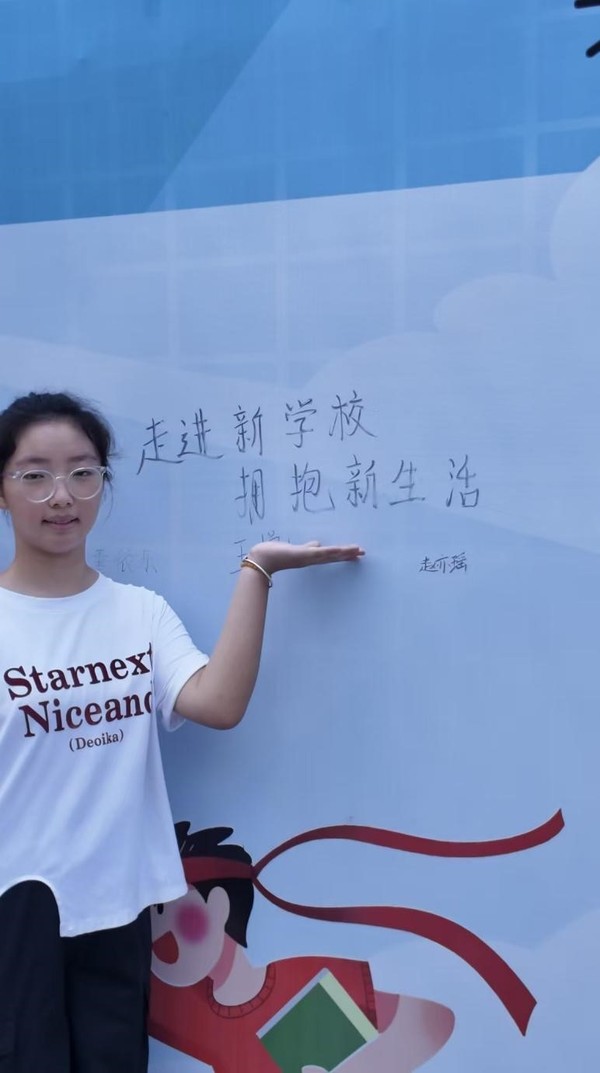 走进新学校
拥抱新生活
赵亦瑶
Starnext
Niceand
(Deoika)